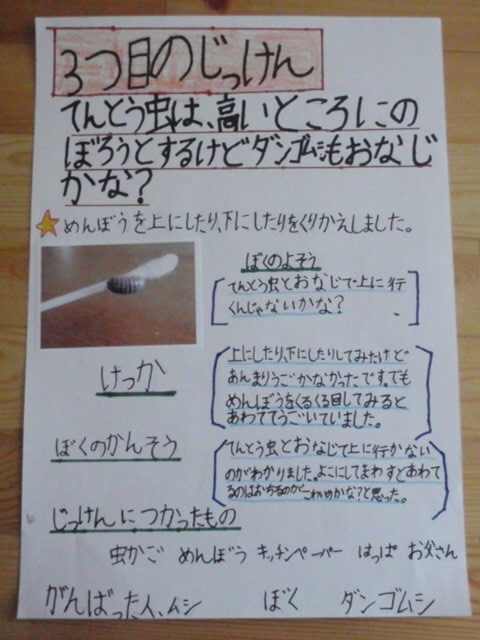 3つ目のじっけん
てんとう虫は、高いところにの
ぼろうとするけどダンゴムシもおなじ
かな?
めんぼうを上にしたり、下にしたりをくりかえしました。
ぼくのよそう
てんとう虫とおなじで上に行
くんじゃないかな?
けっか
上にしたり、下にしたりしてみたけど
あんまりうごかなかったです。でも
めんぼうをくるくる回してみると
あわててうごいていました。
ぼくのかんそう
てんとう虫とおなじで上に行かない
のがわかりました。よこにしてまわすとあわて
るのはおちるのがこわいのかな?と思った。
じっけんにつかったもの
虫かご めんぼう キッチンペーパー はっぱ お父さん
がんばった人、ムシ ぼく ダンゴムシ